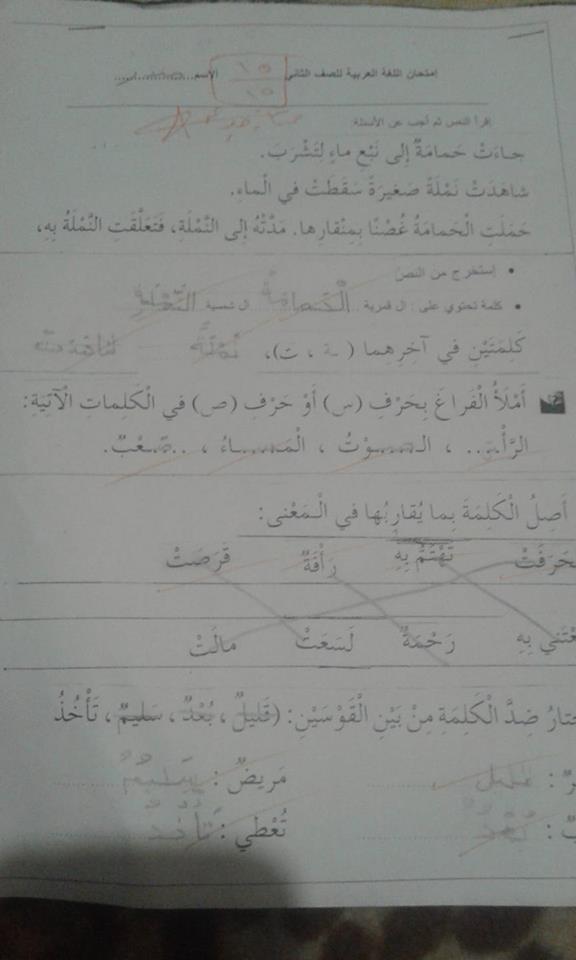 إمتحان اللغة العربية للصف الثاني ١٥ ١٥ الإسم
إقرأ النص ثم أجب عن الأسئلة:
جاءَتْ حَمامَةٌ إلى نَبْعِ ماءٍ لِتَشْرَبَ.
شاهَدَتْ نَمْلَةً صَغيرَةً سَقَطَتْ في الْماءِ.
حَمَلَتِ الْحَمامَةُ غُصْنًا بِمِنْقارِها. مَدَّتْهُ إلى النَّمْلَةِ، فَتَعَلَّقَتِ النَّمْلَةُ بِهِ،
• إستخرج من النص:
• كلمة تحتوي على: ال قمرية الْحَمامَةُ ال شمسية النَّمْلَةِ
كَلِمَتَيْنِ في آخِرِهِما (ـة ، ت)، نَمْلَةً شاهَدَتْ
أَمْلَأُ الْفَراغَ بِحَرْفِ (س) أَوْ حَرْفِ (ص) في الْكَلِماتِ الْآتِيَةِ:
الرَّأْس ، الـصـوْتُ ، الْمَـسـاءُ ، صـعْبٌ.
أَصِلُ الْكَلِمَةَ بِما يُقارِبُها في الْمَعْنى:
حَرَفَتْ تَهْتَمُّ بِهِ رَأْفَةٌ قَرَصَتْ
عْتَني بِهِ رَحْمَةٌ لَسَعَتْ مالَتْ
ختارُ ضِدَّ الْكَلِمَةِ مِنْ بَيْنِ الْقَوْسَيْنِ: (قَليلٌ، بُعْدٌ، سَليمٌ، تَأْخُذُ
رٌ : قليل مَريضٌ : سَليمٌ
بٌ : بُعْدٌ تُعْطي : تَأْخُذُ